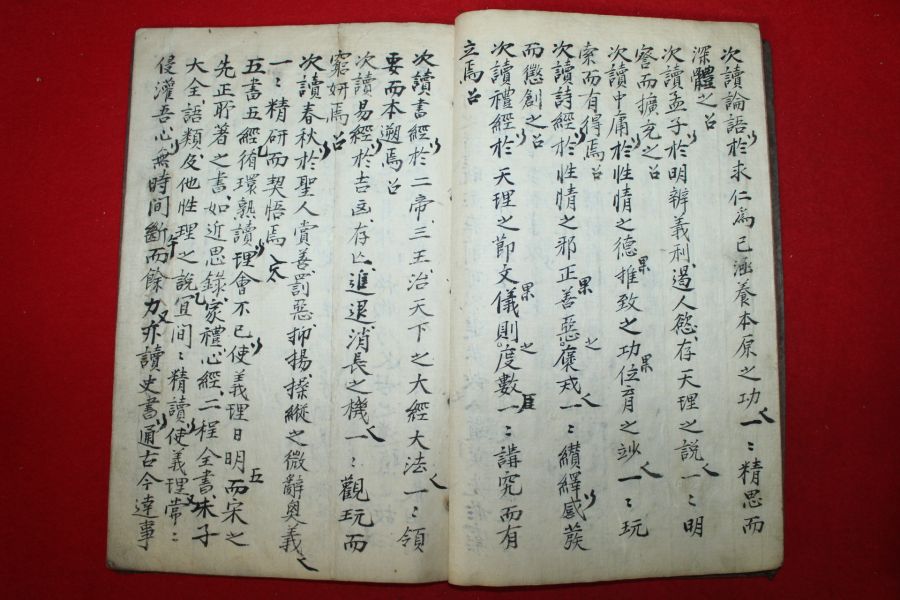 次讀論語於求仁爲己涵養本原之功一〻精思而
深體之
次讀孟子於明辨義利遏人慾存天理之說一〻明
察而擴充之
次讀中庸於性情之德推致之功位育之妙一〻玩
索而有得焉
次讀詩經於性情之邪正善惡褒戒一〻纉繹感發
而懲創之
次讀禮經於天理之節文儀則度數一〻講究而有
立焉
次讀書經於二帝三王治天下之大經大法一〻領
要而本遡焉
次讀易經於吉凶存亡進退消長之機一〻觀玩而
窮姸焉
次讀春秋於聖人賞善罰惡抑揚操縱之微辭奧義
一〻精研而契悟焉
五書五經循環熟讀理會不已使義理日明而宋之
先正所著之書如近思錄家禮心經二程全書朱子
大全語類及他性理之說宜間〻精讀使義理常〻
侵灌吾心無時間斷而餘力亦讀史書通古今達事